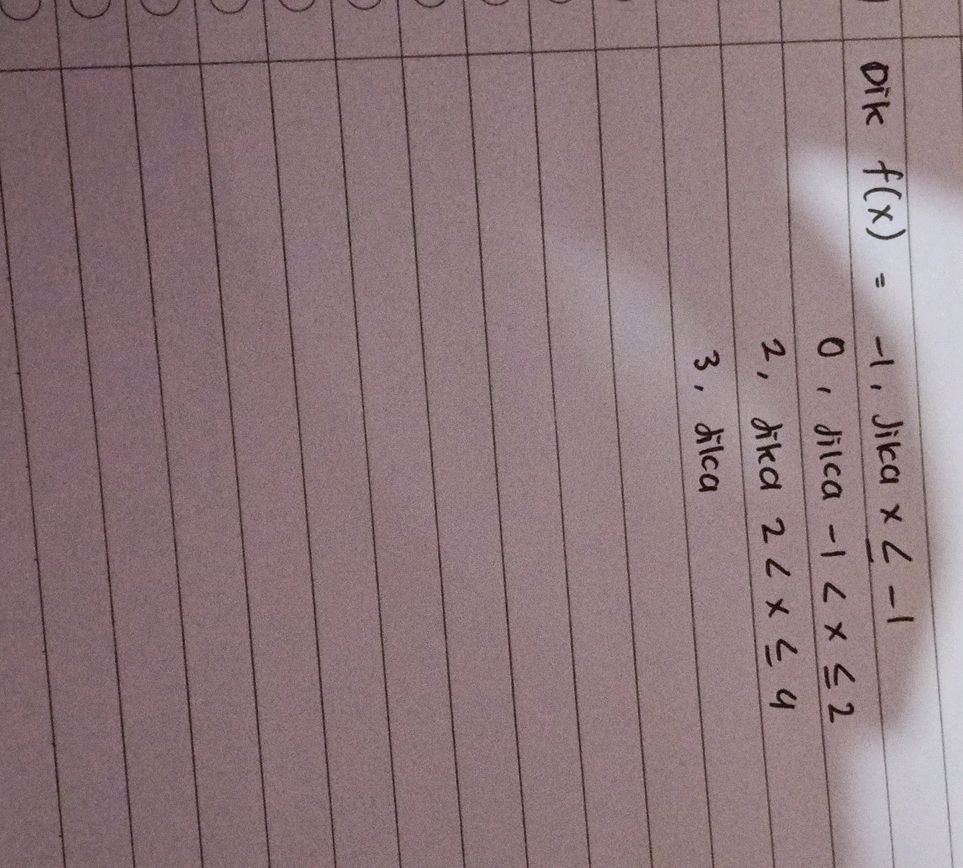 Dik f(x) = -1, Jika x ≤ -1
0, jika -1 < x ≤ 2
2, jika 2 < x ≤ 4
3, jika